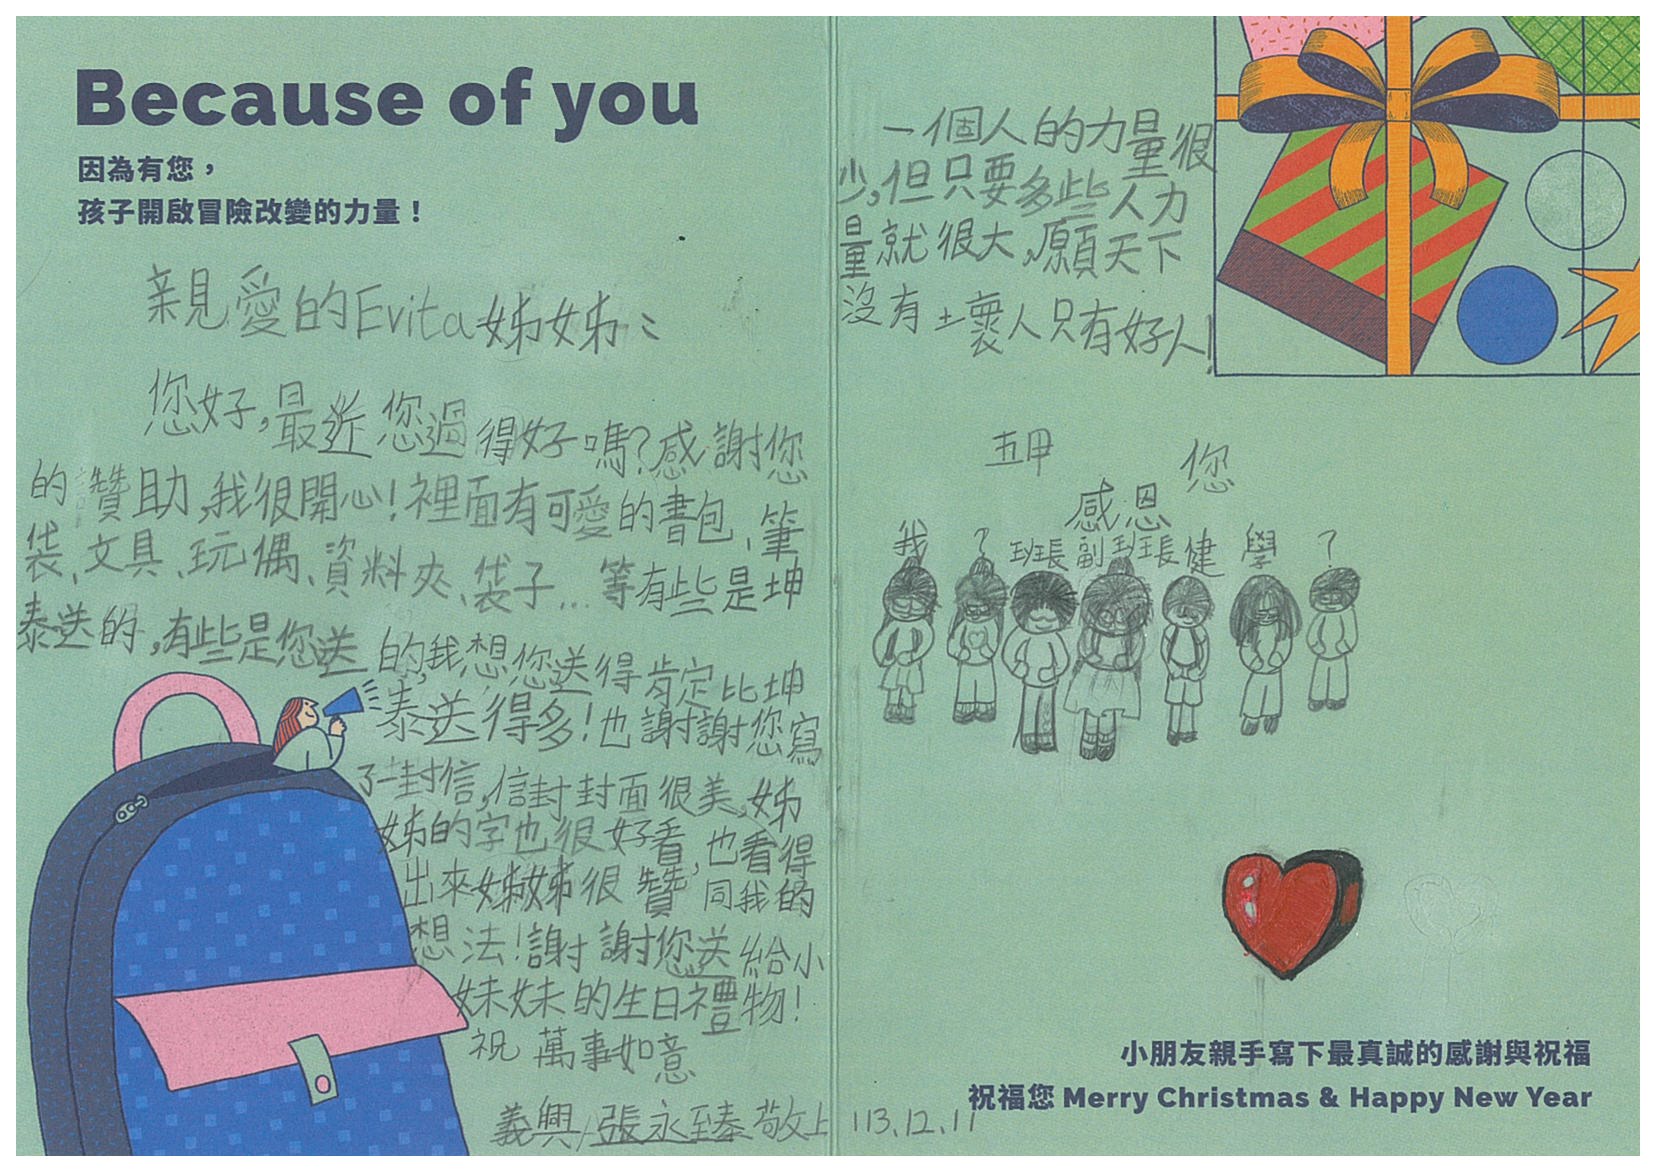 Because of you
因為有您，
孩子開啟冒險改變的力量！
親愛的Evita姊姊：
您好，最近您過得好嗎？感謝您
的讚助，我很開心！裡面有可愛的書包、筆
袋、文具、玩偶、資料夾、袋子...等有些是坤
泰送的，有些是您送的，我想您送得肯定比坤
泰送得多！也謝謝您寫
了一封信，信封封面很美，姊
姊的字也很好看，也看得
出來姊姊很贊同我的
想法！謝謝您送給小
妹妹的生日禮物！
祝 萬事如意
義興/張永臻敬上 113.12.11
一個人的力量很
少，但只要多些人力
量就很大，願天下
沒有土壞人只有好人！
五甲
感恩您
我 ? 班長 副班長 健 學 ?
小朋友親手寫下最真誠的感謝與祝福
祝福您 Merry Christmas & Happy New Year